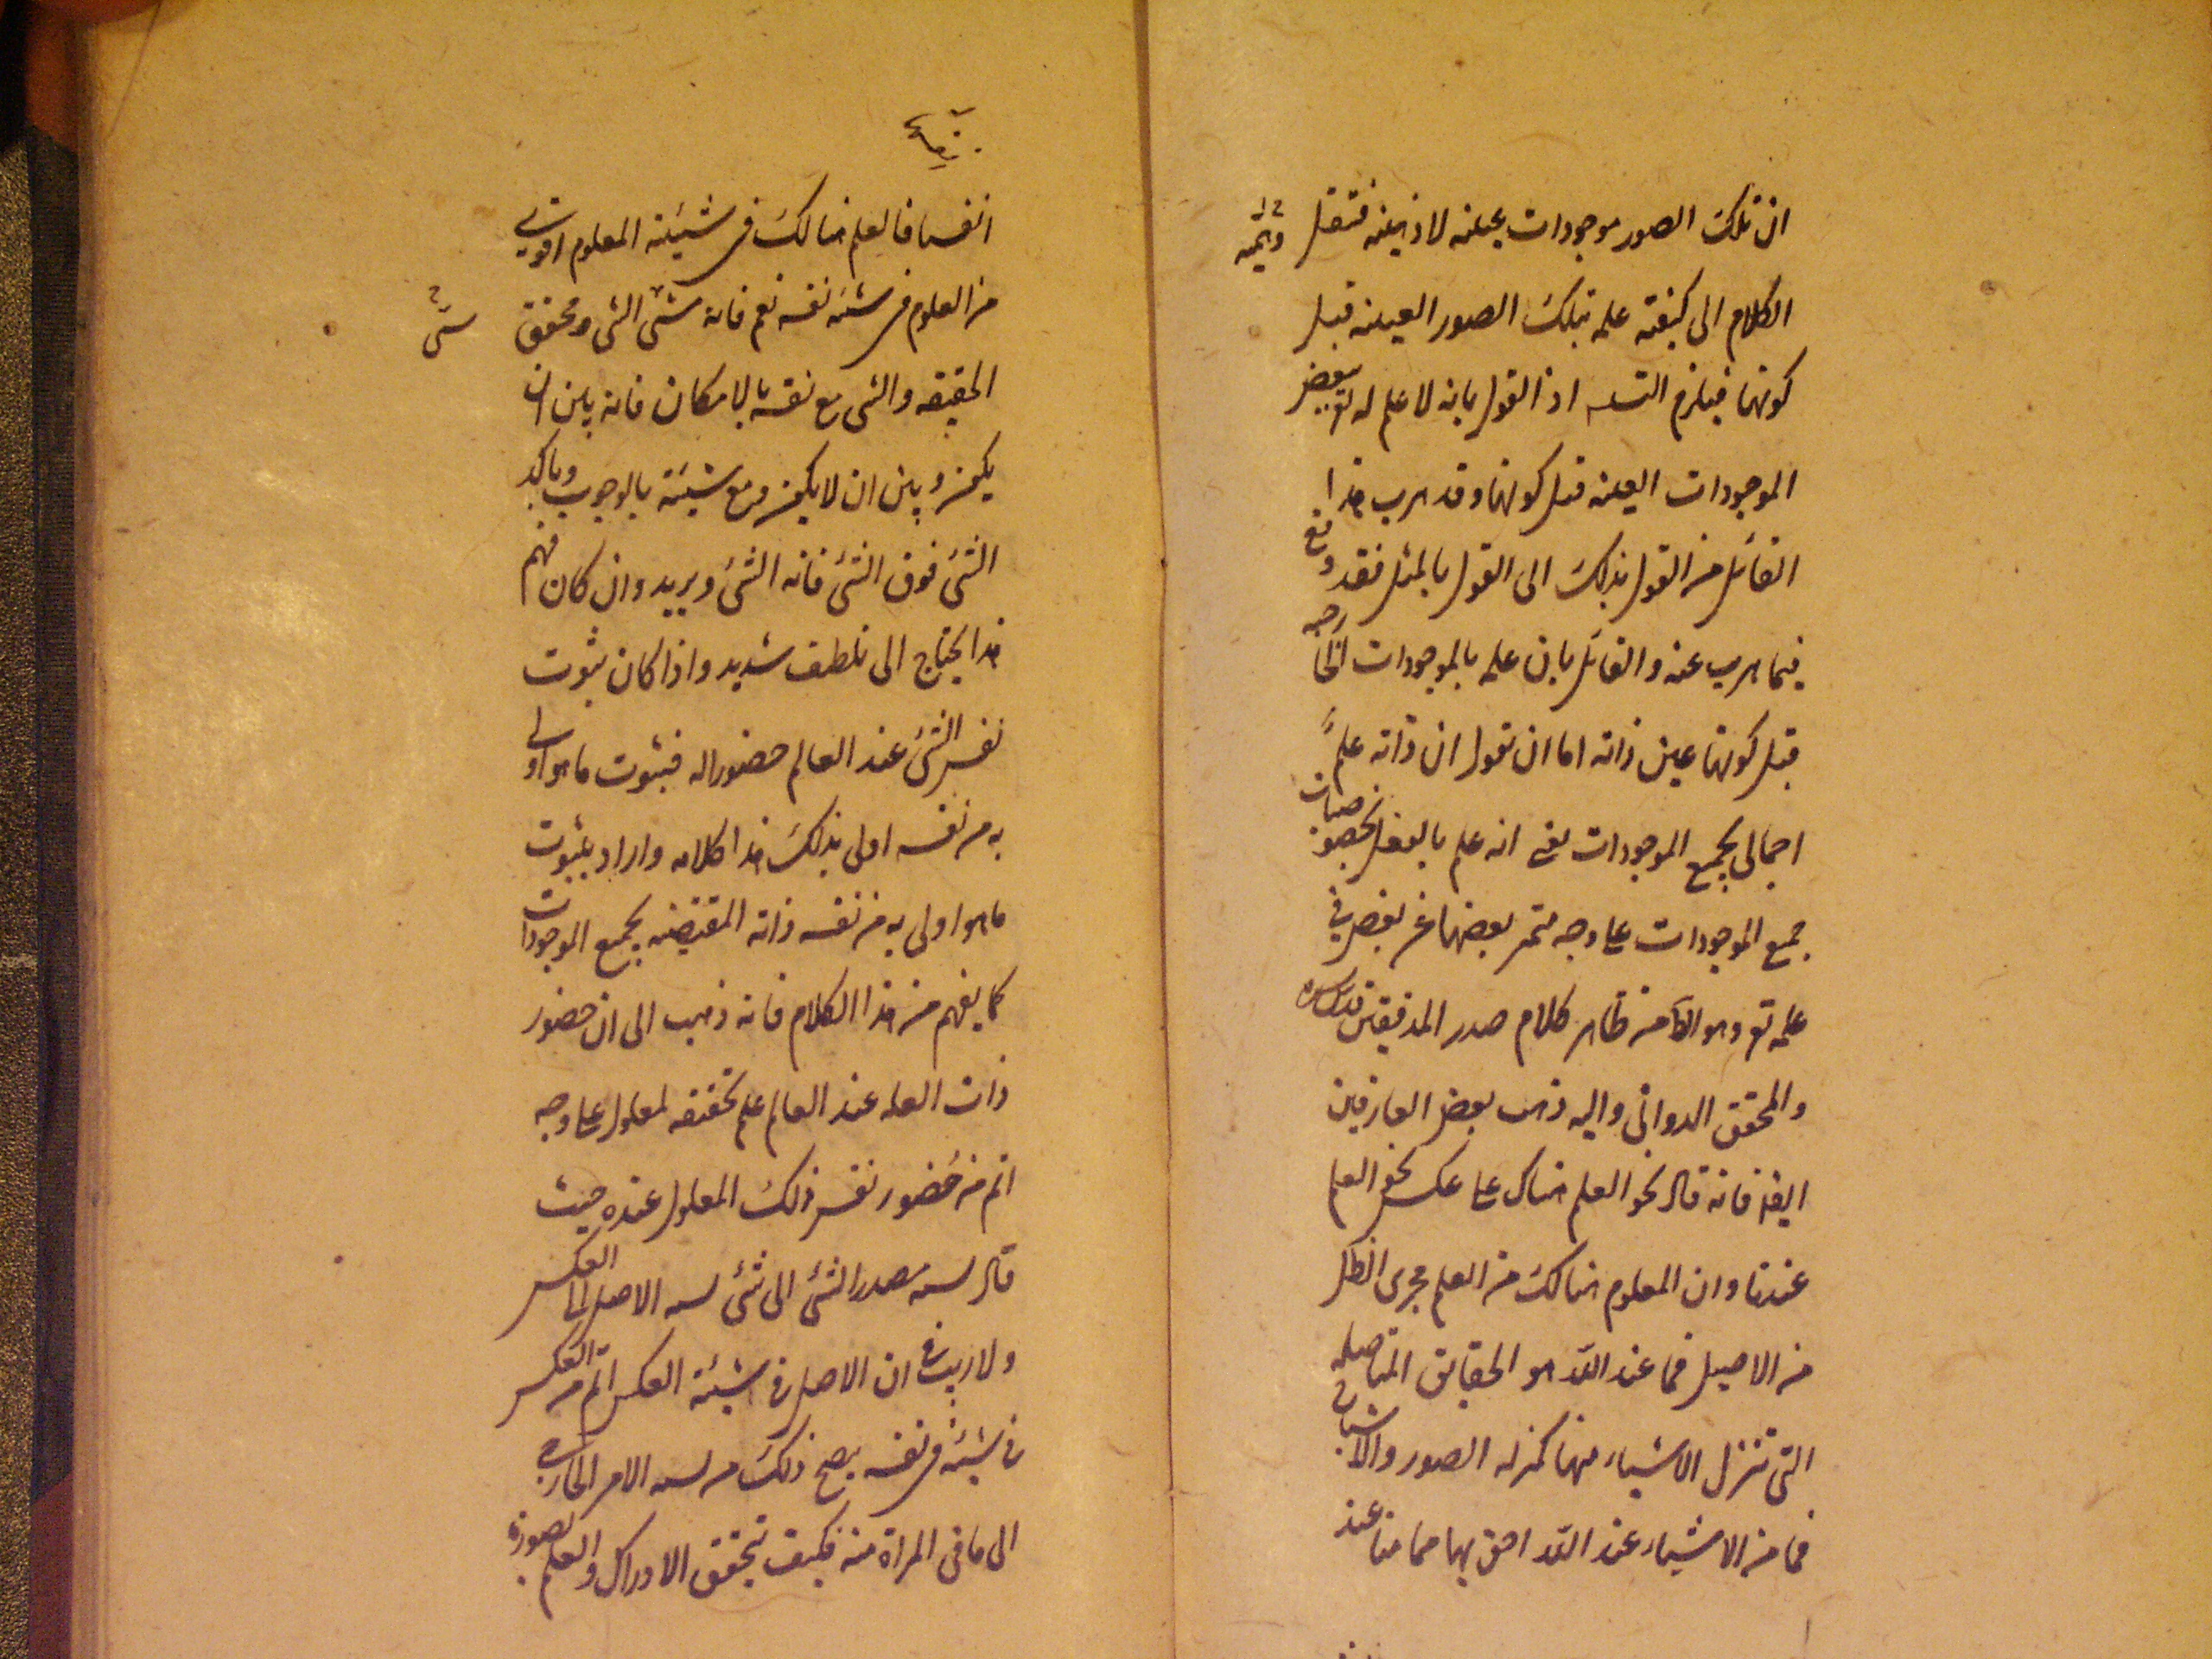 ان تلك الصور موجودات عينيه لا ذهنيه فننقل
الكلام الى كيفية علمه بتلك الصور العينيه قبل
كونها فيلزم التسلسه اذ القول بانه لا علم له تع ببعض
الموجودات العينيه قبل كونها وقد هرب هذا
القائل من القول بذلك الى القول بالمثل فقد وقع
فيما هرب عنه والقائل بان علمه بالموجودات الخارجيه
قبل كونها عين ذاته اما ان يقول ان ذاته علمٌ
اجمالى بجميع الموجودات يعنى انه علم بالفعل بخصوصيات
جميع الموجودات على وجه متميز بعضها عن بعض فى
علمه تع وهو ظاهر كلام صدر المدققين قدس سره
والمحقق الدوانى واليه ذهب بعض العارفين
ايضا فانه قال نحو العلم هناك على عكس نحو العلم
عندنا وان المعلوم هنالك من العلم مجرى الظل
من الاصيل فما عند الله هو الحقايق المتاصله
التى تنزل الاشياء منها منزله الصور والاشباح
فما من الاشياء عند الله احق بها مما منا عند
انفسنا فالعلم هنالك فى شيئية المعلوم اقوى
من المعلوم فى شيئية نفسه نعم فانه شئ الشئ ومحقق
الحقيقه والشئ مع نفسه بالامكان فانه بين ان
يكون وبين ان لا يكون ومع شيئه بالوجوب وتاكد
الشئ فوق الشئ فانه الشئ ويزيد وان كان فهم
هذا يحتاج الى تلطف شديد واذا كان ثبوت
نفس الشئ عند العالم حضورا له فثبوت ما هو اولى
به من نفسه اولى بذلك هذا كلامه واراد بثبوت
ما هو اولى به من نفسه ذاته المقتضيه لجميع الموجودات
كما يفهم من هذا الكلام فانه ذهب الى ان حضور
ذات العله عند العالم علم تحقيقه لمعلول على وجه
اتم من حضور نفس ذلك المعلول عنده حيث
قال نسبه مصدر الشئ الى شئ نسبه الاصل الى العكس
ولا ريب فى ان الاصل فى شيئية العكس اتم من العكس
فى شيئيه فى نفسه يصح ذلك من نسبه الامر الخارجى
الى ما فى المراة منه فكيف يتحقق الادراك والعلم بصورة